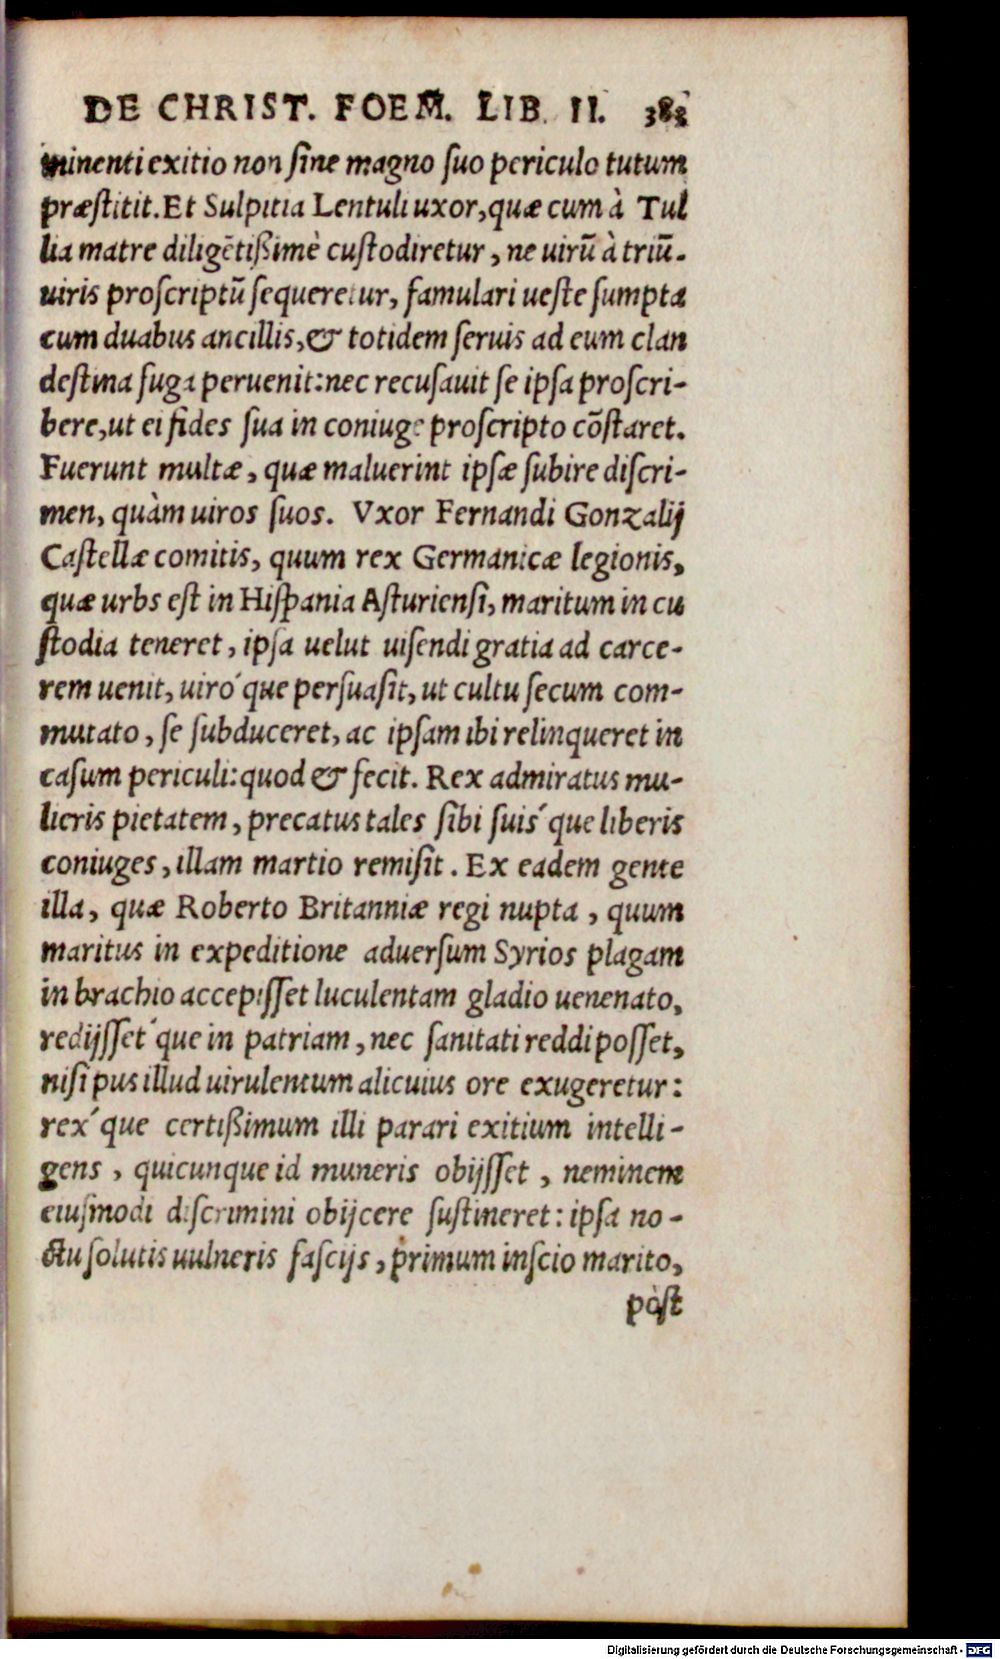 DE CHRIST. FOEM. LIB. II. 383
minenti exitio non sine magno suo periculo tutum
præstitit. Et Sulpitia Lentuli uxor, quæ cum à Tul
lia matre diligẽtißimè custodiretur, ne uirũ à triũ-
uiris proscriptũ sequeretur, famulari ueste sumpta
cum duabus ancillis, & totidem seruis ad eum clan
destina fuga peruenit: nec recusauit se ipsa proscri-
bere, ut ei fides sua in coniuge proscripto cõstaret.
Fuerunt multæ, quæ maluerint ipsæ subire discri-
men, quàm uiros suos. Vxor Fernandi Gonzalij
Castellæ comitis, quum rex Germanicæ legionis,
quæ urbs est in Hispania Asturiensi, maritum in cu
stodia teneret, ipsa uelut uisendi gratia ad carce-
rem uenit, uiró que persuasit, ut cultu secum com-
mutato, se subduceret, ac ipsam ibi relinqueret in
casum periculi: quod & fecit. Rex admiratus mu-
lieris pietatem, precatus tales sibi suis´ que liberis
coniuges, illam martio remisit. Ex eadem gente
illa, quæ Roberto Britanniæ regi nupta, quum
maritus in expeditione aduersum Syrios plagam
in brachio accepisset luculentam gladio uenenato,
redijsset´ que in patriam, nec sanitati reddi posset,
nisi pus illud uirulentum alicuius ore exugeretur:
rex´ que certißimum illi parari exitium intelli-
gens, quicunque id muneris obijsset, neminem
eiusmodi discrimini obijcere sustineret: ipsa no-
ctu solutis uulneris fascijs, primum inscio marito,
pòst
Digitalisierung gefördert durch die Deutsche Forschungsgemeinschaft - DFG